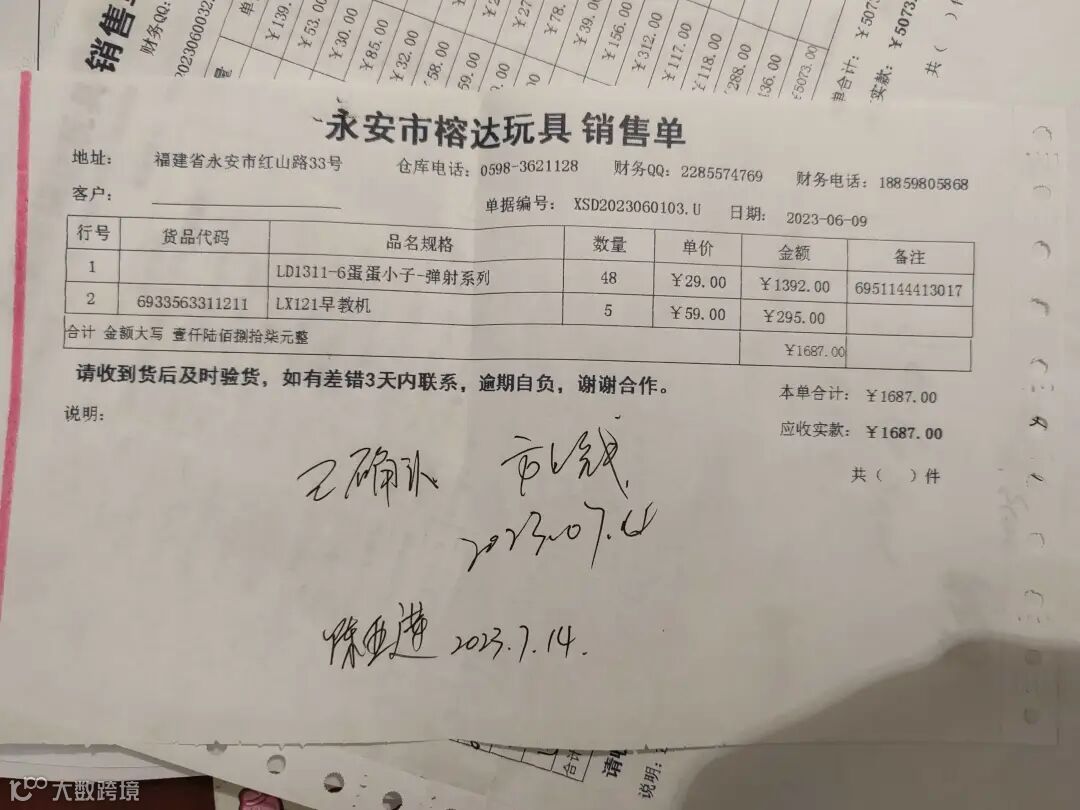 销售
财务QQ:
2023060032
单
¥139.
¥53.00
¥30.00
¥85.00
¥32.00
58.00
59.00
00
¥27
¥78.
¥39.0
¥156.00
¥312.00
¥117.00
¥118.00
288.00
36.00
¥5073.00
单合计: ¥5073
实款: ¥5073.0
共(
永安市榕达玩具 销售单
地址: 福建省永安市红山路33号 仓库电话: 0598-3621128 财务QQ: 2285574769 财务电话: 18859805868
客户: 单据编号: XSD2023060103.U 日期: 2023-06-09
行号 货品代码 品名规格 数量 单价 金额 备注
1 LD1311-6蛋蛋小子-弹射系列 48 ¥29.00 ¥1392.00 6951144413017
2 6933563311211 LX121早教机 5 ¥59.00 ¥295.00
合计 金额大写 壹仟陆佰捌拾柒元整 ¥1687.00
请收到货后及时验货，如有差错3天内联系，逾期自负，谢谢合作。
本单合计: ¥1687.00
说明:
应收实款: ¥1687.00
共( )件
已确认
2023.07.
陈亚 2023.7.14.
合计
请收
说明:
大数跨境